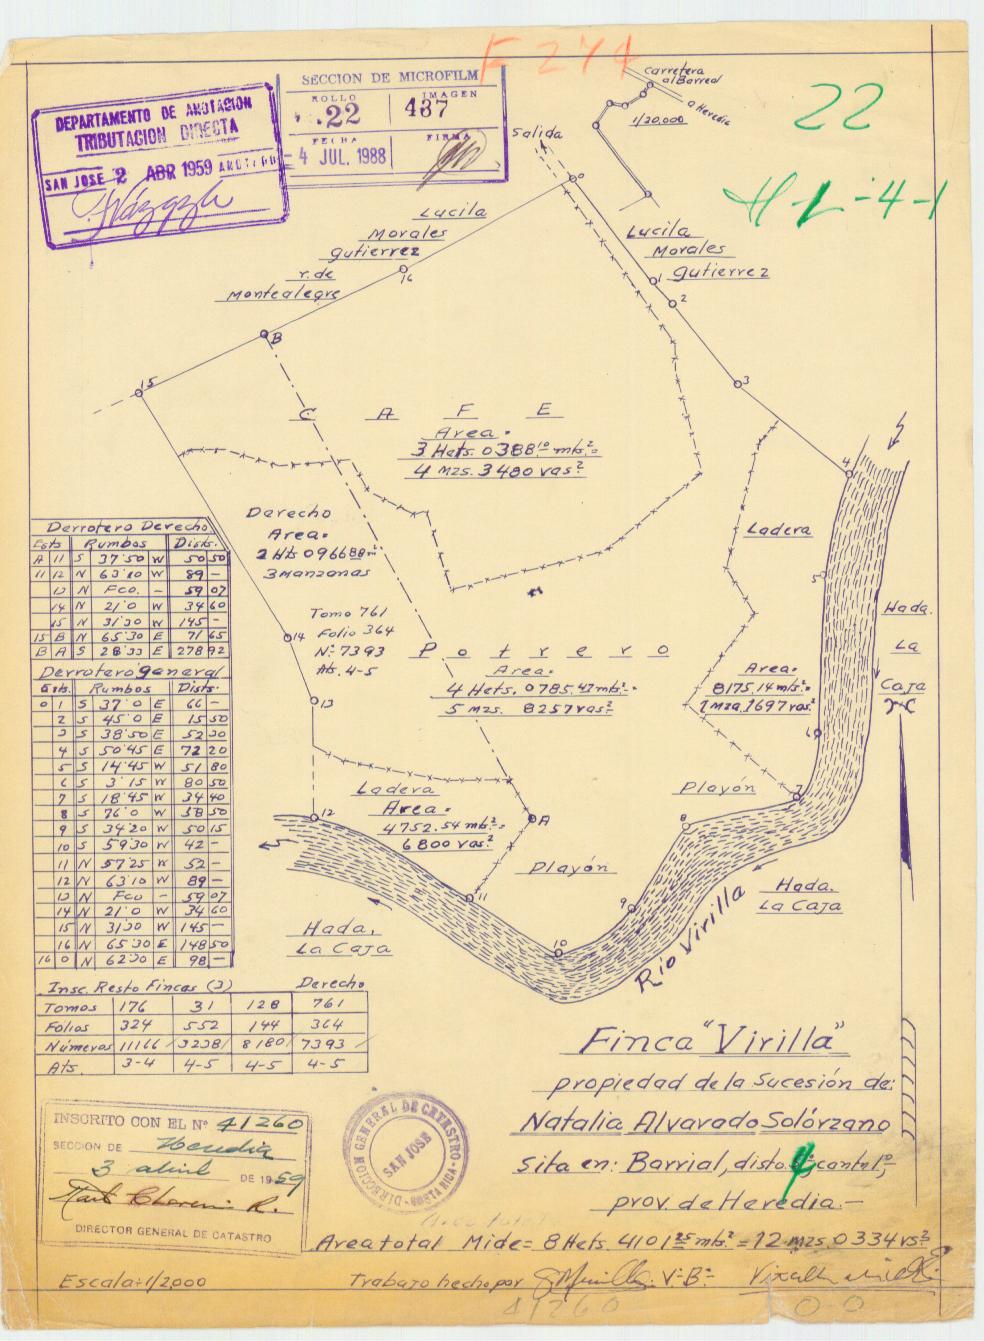 F 274
22
H-L-4-1
DEPARTAMENTO DE ANOTACION
TRIBUTACION DIRECTA
SAN JOSE 2 ABR 1959 ANOTADO
SECCION DE MICROFILM
ROLLO IMAGEN
22 437
FECHA FIRMA
4 JUL. 1988
Carretera
al Barreal
a Heredia
1/20,000
Salida
Lucila
Morales
gutierrez
r. de
Montealegre
Lucila
Morales
gutierrez
0
1
2
3
4
5
6
7
8
9
10
11
12
13
14
15
16
A
B
C A F E
Area.
3 Hets. 0388.10 mts.²
4 mzs. 3480 vas.²
Derecho
Area.
2 Hts 096688 m²
3 Manzanas
Tomo 761
Folio 364
N: 7393
Ats. 4-5
Ladera
Area.
8175,14 mts.²
1 Mza, 1697 vas.²
Potrero
Area.
4 Hets. 0785.47 mts.²
5 mzs. 8257 vas.²
Hada.
La
Caja
Ladera
Area.
4752.54 mts.²
6800 vas.²
Playón
Playón
Hada.
La Caja
Hada,
La Caja
Río Virilla
Derrotero Derecho
Ests Rumbos Dists.
A 11 S 37°50 W 50 50
11 12 N 63°10 W 89 -
13 N Fco. - 59 07
14 N 21°0 W 34 60
15 N 31°30 W 145 -
15 B N 65°30 E 71 65
B A S 28°33 E 278 92
Derrotero general
Ests. Rumbos Dists.
0 1 S 37°0 E 66 -
2 S 45°0 E 15 50
3 S 38°50 E 52 30
4 S 50°45 E 72 20
5 S 14°45 W 51 80
6 S 3°15 W 80 50
7 S 18°45 W 34 40
8 S 76°0 W 58 50
9 S 34°20 W 50 15
10 S 59°30 W 42 -
11 N 57°25 W 52 -
12 N 63°10 W 89 -
13 N Fco - 59 07
14 N 21°0 W 34 60
15 N 31°30 W 145 -
16 N 65°30 E 148 50
16 0 N 62°30 E 98 -
Insc. Resto Fincas (3) Derecho
Tomos 176 31 128 761
Folios 324 552 144 364
Números 11166 32381 8180 7393
Ats. 3-4 4-5 4-5 4-5
Finca "Virilla"
propiedad de la Sucesión de:
Natalia Alvarado Solórzano
sita en: Barrial, disto. 4°, cantn. 1°,
prov. de Heredia.-
INSCRITO CON EL Nº 41260
SECCION DE Heredia
3 abril DE 1959
DIRECTOR GENERAL DE CATASTRO
DIRECCION GENERAL DE CATASTRO
SAN JOSE
COSTA RICA
Area total Mide = 8 Hets. 4101.25 mts.² = 12 mzs. 0334 vs.²
Escala: 1/2000
Trabajo hecho por V.B.
41260
0-0